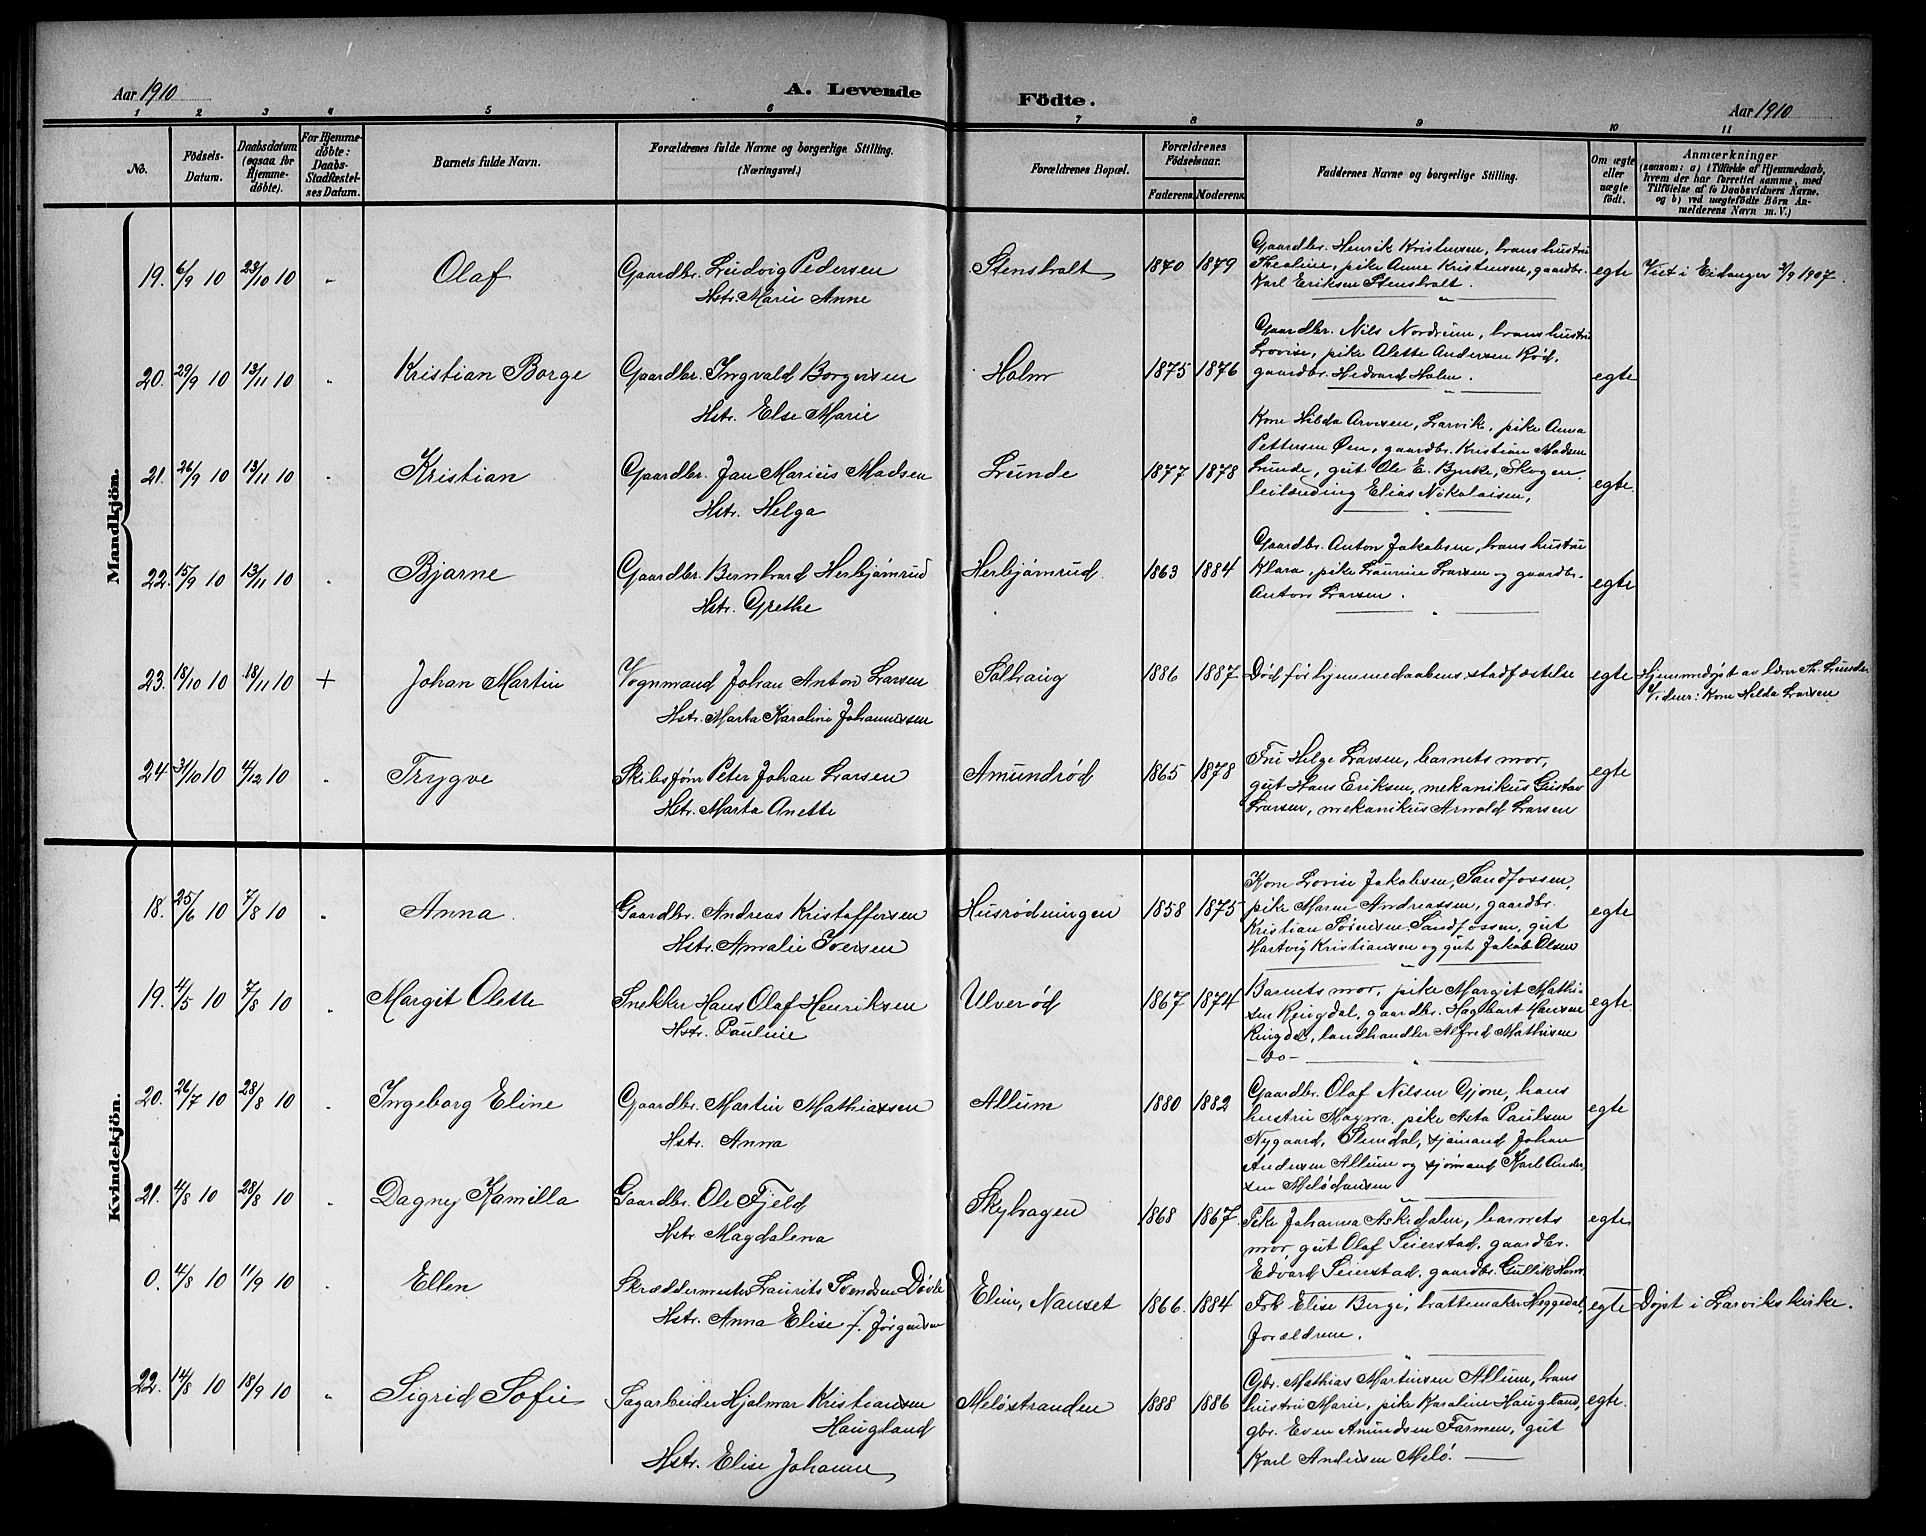 Aar 1910
A. Levende Födte.
Aar 1910
1 2 3 4 5 6 7 8 9 10 11
No.
Födsels-Datum.
Daabsdatum (ogsaa for Hjemmedöbte).
For Hjemmedöbte: Daabs-Stadfæstelses Datum.
Barnets fulde Navn.
Forældrenes fulde Navne og borgerlige Stilling. (Næringsvei.)
Forældrenes Bopæl.
Forældrenes Födselsaar.
Faderens. Moderens.
Faddernes Navne og borgerlige Stilling.
Om ægte eller uægte födt.
Anmærkninger
(saasom: a) i Tilfælde af Hjemmedaab,
hvem der har forrettet samme, med
Tilföielse af to Daabsvidners Navne.
og b) ved uægtefödte Börn An-
melderens Navn m. V.)
Mandkjön.
19. 6/9 10 23/10 10 " Olaf
Gaardbr. Ludvig Pedersen
Hstr. Marie Anne
Stensholt 1870 1879
Gaardbr. Henrik Kristensen, hans hustru
Thealine, pike Anne Kristensen, gaardbr.
Karl Eriksen Stensholt.
egte Viet i Eidanger 3/9 1907.
20. 29/9 10 13/11 10 " Kristian Borge
Gaardbr. Ingvald Borgersen
Hstr. Else Marie
Holm 1875 1876
Gaardbr. Nils Nordrum, hans hustru
Lovise, pike Alette Andersen Rød,
gaardbr. Hedvard Holm.
egte
21. 26/9 10 13/11 10 " Kristian
Gaardbr. Jan Marius Madsen
Hstr. Helga
Lunde 1877 1878
Kone Hilda Arvesen, Larvik, pike Anna
Pettersen Øen, gaardbr. Kristian Madsen
Lunde, gut Ole E. Bjerke, Skogen
leilænding Elias Nikolaisen,
egte.
22. 15/9 10 13/11 10 " Bjarne
Gaardbr. Bernhard Herbjørnrud
Hstr. Grethe
Herbjørnrud. 1863 1884
Gaardbr. Anton Jakobsen, hans hustru
Klara, pike Laurine Larsen og gaardbr.
Anton Larsen.
egte
23. 18/10 10 18/11 10 + Johan Martin
Vognmand Johan Anton Larsen
Hstr. Marta Karoline Johannessen
Solhaug 1886 1887
Død før hjemmedaabens stadfæstelse
egte Hjemmedøpt av lærer Th. Lunde.
Vidner: Kone Hilda Larsen
24 31/10 10 4/12 10 " Trygve
Skibsfører Peter Johan Larsen
Hstr. Marta Anette
Amundrød 1865 1878
Fru Helge Larsen, barnets mor,
gut Hans Eriksen, mekanikus Gustav
Larsen, mekanikus Arnold Larsen
egte
Kvindekjön.
18. 25/6 10 7/8 10 " Anna.
Gaardbr. Andreas Kristoffersen
Hstr. Amalie Iversen
Husrødningen 1858 1875
Kone Lovise Jakobsen, Sandfossen,
pike Maren Andreassen, gaardbr.
Kristian Sørensen Sandfossen, gut
Hartvig Kristiansen og gut Jakob Olsen
egte
19. 4/5 10 7/8 10 " Margit Olette
Snekker Hans Olaf Henriksen
Hstr. Pauline
Ulverød 1867 1874
Barnets mor, pike Margit Mathi-
sen Ringdal, gaardbr. Hagbart Hansen
Ringdal, landhandler Alfred Mathisen
- do -
egte.
20. 26/7 10 28/8 10 " Ingeborg Eline
Gaardbr. Martin Mathiassen
Hstr. Anna
Allum 1880 1882
Gaardbr. Olaf Nilsen Gjone, hans
hustru Magna, pike Asta Paulsen
Nygaard, Slemdal, sjømand Johan
Andersen Allum og sjømand Karl Ander-
sen Melødansen
egte
21. 4/8 10 28/8 10 " Dagny Kamilla
Gaardbr. Ole Fjeld
Hstr. Magdalena
Skyhagen 1868 1867.
Pike Johanna Askedalen, barnets
mor, gut Olaf Seierstad, gaardbr.
Edvard Seierstad, gaardbr. Gullik Holm.
egte
0. 4/8 10 11/9 10 " Ellen
Skræddermester Laurits Svendsen Døvle
Hstr. Anna Elise f. Jørgensen
Elim, Nanset 1866. 1884
Frk Elise Berge, hattemaker Heggedal,
forældrene.
egte Døpt i Larviks kirke.
22. 14/8 10 18/9 10 " Sigrid Sofie
Sagarbeider Hjalmar Kristiansen
Haugland
Hstr. Elise Johanne
Meløstranden 1888 1886
Gbr. Mathias Martinsen Allum, hans
hustru Marie, pike Karoline Haugland,
gbr. Even Amundsen Farmen, gut
Karl Andersen Melø.
egte.